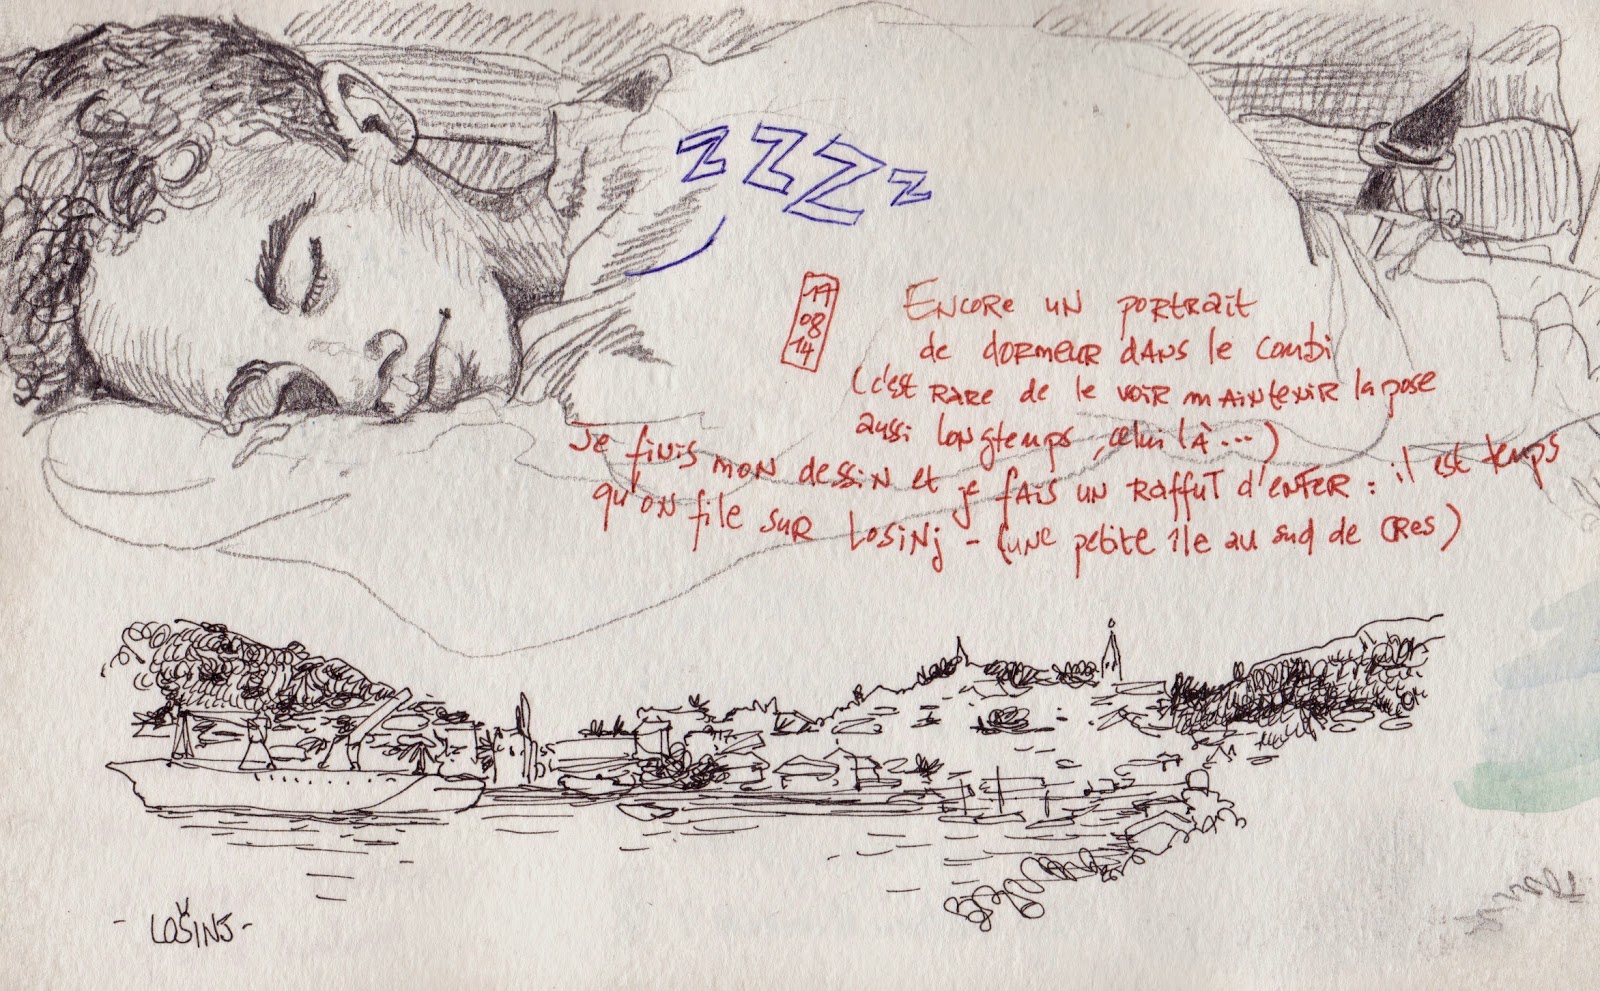 zzZz
17
08
14
ENCORE UN PORTRAIT
de dORMEUR dANS le combi
(c'est RARE de le voiR mAiNtENiR la pose
aussi longtemps, celui là...)
Je finis mon dessin et je fais un raffut d'enfer : il est temps
qu'on file sur Losinj - (une petite île au sud de Cres)
- LOŠINJ -